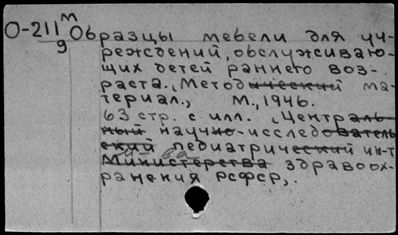 О-211 м
9
Образцы мебели для уч-
реждений, обслуживаю-
щих детей раннего воз-
раста. Методический ма-
териал., М., 1946.
63 стр. с илл. Централь-
ный научно-исследователь
ский педиатрический ин-т
Министерства здравоох-
ранения РСФСР,.